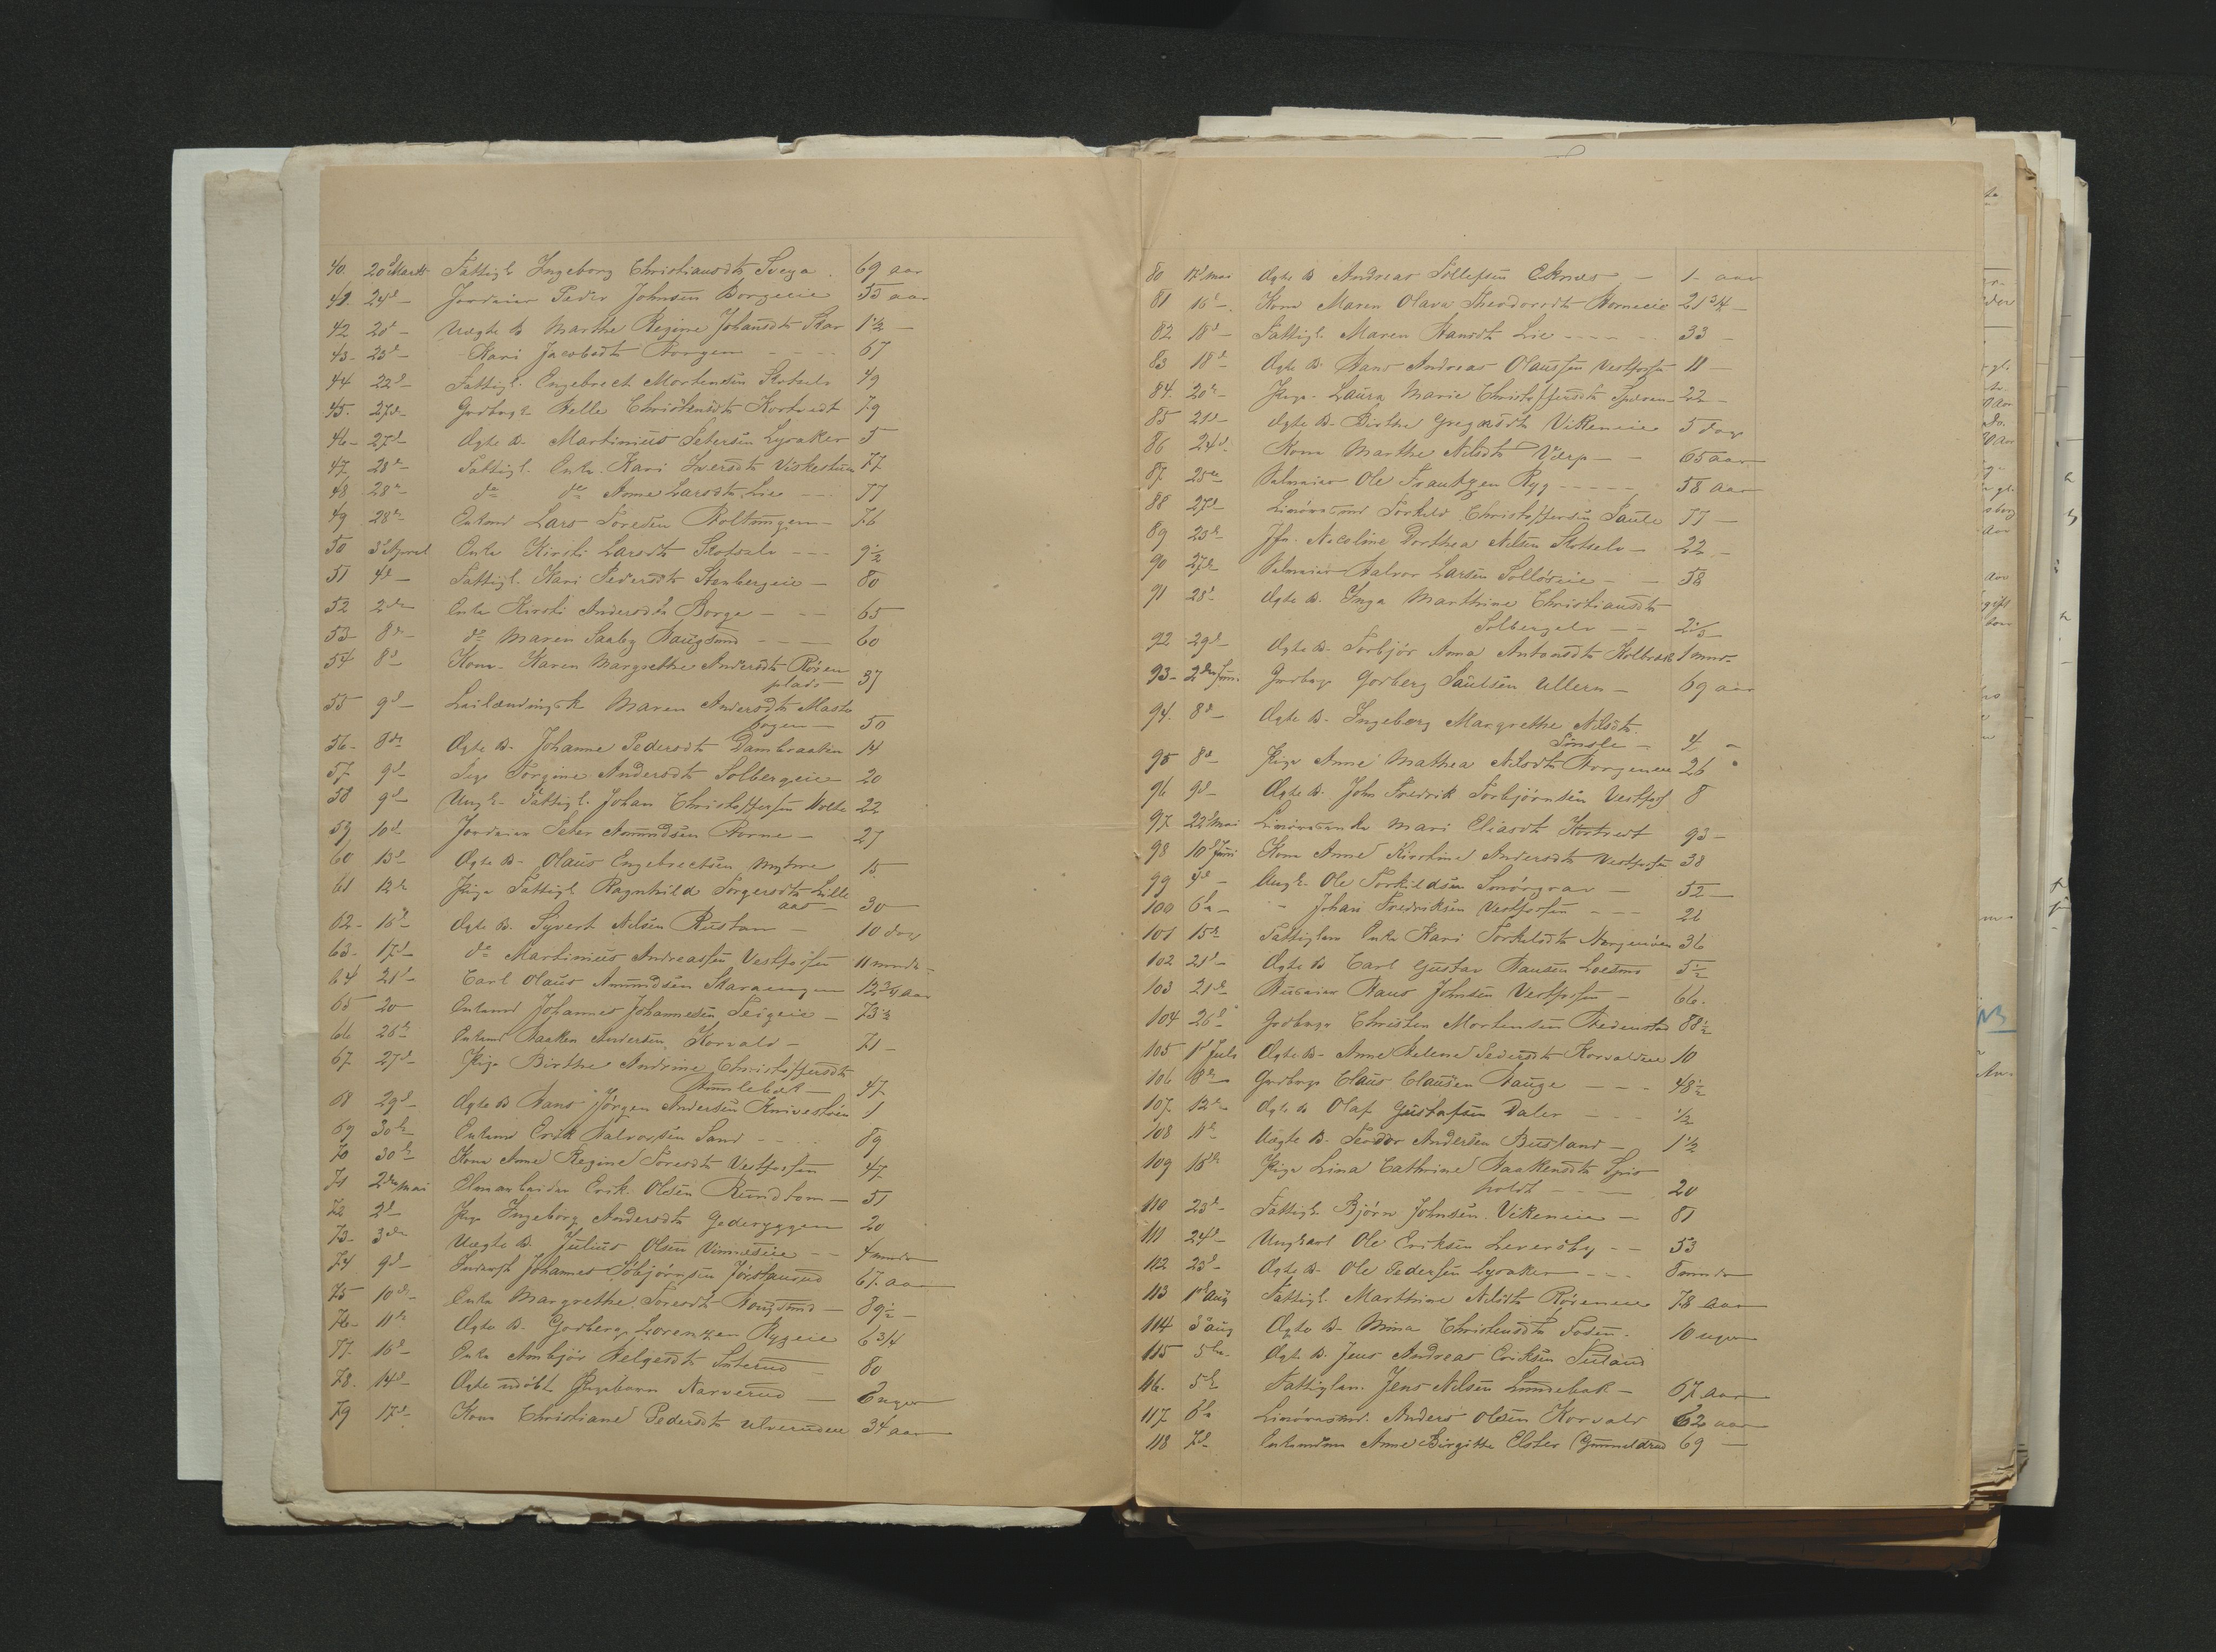 40. 20d Marts Fattigl. Ingeborg Christiansdtr Sveya. 69 aar
41. 24d - Jordeier Peder Johnsen Borgeeie 55 aar
42 20d - Uægte B Marthe Regine Johansdtr Skar 1½ -
43- 23d - Kari Jacobsdtr Horgen - - - - 67
44 22d - Fattigl. Engebrect Mortensen Skotselv 49
45. 27d - Gaardbrugr Helle Christensdtr Kortvedt 79
46- 27d - Ægte B. Martinius Petersen Lyraker 5
47 28d - Fattigl. Enke Kari Iversdtr Viskestuen 77
48 28d do do Anne Larsdtr Lie - - - 77
49 28d Enkemd Lars Toresen Holtungen - 76
50 3d April Enke Kirsti Larsdtr Skotselv - - - 9½
51 4d - Fattigl. Kari Pedersdtr Stenbergeie - 80
52 2den Enke Kirsti Andersdtr Borge - - - 65
53- 8d - do Maren Saaby Haugsund - - - 60
54 8d Kone Karen Margrethe Andersdtr Røren
plads - 37
55 9d - Leilændingsk Maren Andersdtr Maste
bogen - 50
56- 8de Ægte B. Johanne Pedersdtr Dambraaten 14
57 9d - Pige Torgine Andersdtr Solbergeie 20
58 9d - Ungk. Fattigl. Johan Christoffersen Holte 22
59 10d Jordeier Peter Amundsen Horne - 27
60 13d - Ægte B - Olaus Engebrectsen Myhre 15.
61 12d Pige Fattigl Ragnhild Torgersdtr Lille
aas - 30
62- 16d Ægte B. Syvert Nilsen Rustan - 10 dag
63- 17d - do Martinius Andreassen Vestfossen 11 mnder
64 21d - Carl Olaus Amundsen Skaraugen 12¾ aar
65 20 - Enkemd Johannes Johannesen Teigeie - 73½
66 26d Enkemd Haaken Andersen Korvald - 71 -
67 27d - Pige Birthe Andrine Christoffersdtr
Hannlebæk - 47
68 29d - Ægte B Hans Jørgen Andersen Knivestøen 1
69 30d - Enkemd Erik Halvorsen Sand - - - 89
70 30d Kone Anne Regine Toresdtr Vestfossen 47
71 2den Mai Elmarbeider Erik Olsen Rundtom - 51
72 2d - Pige Ingeborg Andersdtr Gederyggen 20
73- 3de Uægte B. Julius Olsen Vinnæseie - - 4 mnder
74 9d - Inderst Johannes Tobjørnsen Jørstaurud 67 aar
75 10d - Enke Margrethe Toresdtr Haugsund - 89½ -
76- 11d Ægte B. Godberg Lorenzen Rygeie 6¾
77. 16d Enke Ambjør Helgesdtr Saterud - 80
78. 14d Ægte udøbt Pigebarn Narverud - 6 uger
79 17d - Kone Christiane Pedersdtr Ulverudeie 34 aar
80 12d mai Ægte B Andreas Tollefsen Eknæs - 1 - aar
81 16d - Kone Maren Olava Theodorsdtr Horneeie 21¾ -
82 18d - Fattigl. Maren Hansdtr Lie - - - - 33 -
83 18d - Ægte B. Hans Andreas Olaussen Vestfossen 11 -
84. 20d - Pige - Laura Marie Christoffersdtr 22 -
85 21d - Ægte B. Birthe Gregarsdtr Vikeneie 5 dage
86 24d. Kone Marthe Nilsdtr Ulerp - - 65 aar
87. 25de Selveier Ole Frantzen Ryg - - - - 58 aar
88 27d - Torkild Christoffersen Saule 77 -
89 23d Jfr. Nicoline Dorthea Nilsen Skotselv - 22 -
90 27d Selveier Halvor Larsen Solløseie - - 58
91 28d - Ægte B. Inga Marthine Christiansdtr
Solbergelv - - 2⅓
92 29d - Ægte B. Torbjør Anna Antonsdtr Kolbræk 1 mnd.
93- 2den Juni Gaardbrugr Godberg Paulsen Ullern - 69 aar
94. 8d - Ægte B. Ingeborg Margrethe Nilsdtr
Temsle - 4 -
95 8d - Pige Anne Mathea Nilsdtr Horgeneie 26
96 9d - Ægte B. John Fredrik Torbjørnsen Vestfos 8
97 22d Mai Mari Eliasdtr Hortvedt 93 -
98 10d Juni Kone Anne Kirstine Andersdtr Vestfossen 38
99 4d - Ungk. Ole Torkildsen Smørgrav - 52 -
100 6te - " Johan Fredriksen Vestfossen - - - 26
101 15d Fattiglem Enke Kari Torkilsdtr 36
102 21d - Ægte B Carl Gustav Hansen Loesmo 5½
103 21d Huseier Hans Johnsen Vestfossen - 66.
104 26d Gaardbruger Christen Mortensen Hedenstad 88½
105 1d Juli Ægte B - Anne Helene Pedersdtr Korvaldeie 10
106 8de Gaardbruger Claus Clausen Hauge - - - 48½
107. 12d - Ægte B Olaf Gustafsen Daler - - - ½
108 11d - Uægte B. Teodor Andersen Busland - 1½
109 18d Pige Lina Cathrine Haakensdtr Spis
holdt - - - 20
110 23d - Fattigl. Bjørn Johnsen Vikeneie - 81
111 24d - Ungkarl Ole Eriksen Leversby - - 53
112 23d - Ægte B. Ole Pedersen Lyraker - - - 8 mnder
113 1d Aug Fattigl. Marthine Nilsdtr Røreneie 78 aar
114 3d aug Ægte B. Mina Christensdtr Foden - 10 uger
115 5te - Ægte B. Jens Andreas Eriksen Puland
116. 5te Fattiglem. Jens Nilsen Lundebæk - 67 aar
117 6te Anders Olsen Korvald 62 aar
118 7d - Enkemadam Anne Birgitte Elster (Gunneldrud 69 -